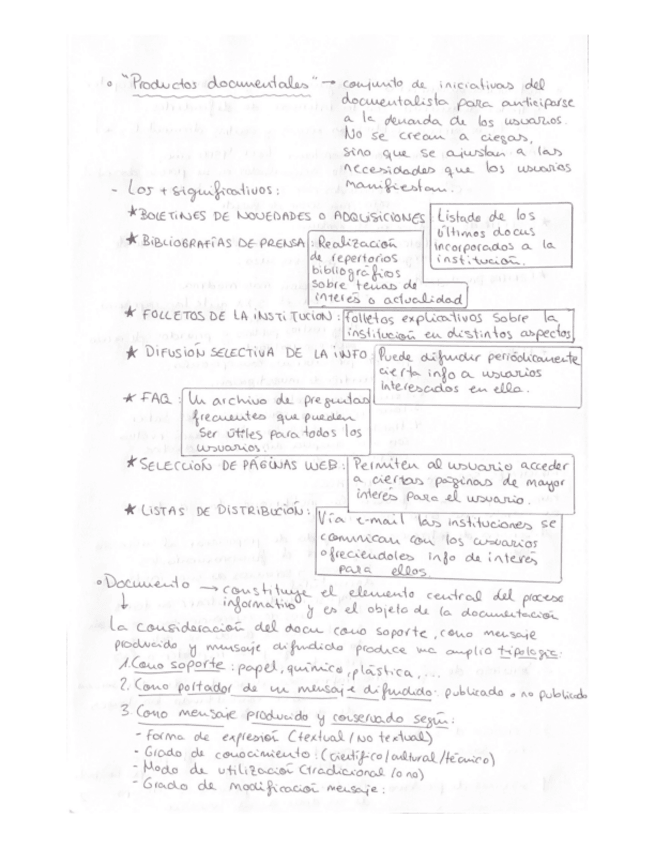 "Productos documentales" → conjunto de iniciativas del
documentalista para anticiparse
a la demanda de los usuarios.
No se crean a ciegas,
sino que se ajustan a las
necesidades que los usuarios
manifiestan.
- Los + significativos:
★ BOLETINES DE NOVEDADES O ADQUISICIONES Listado de los
últimos docus
incorporados a la
institución.
★ BIBLIOGRAFÍAS DE PRENSA: Realización
de repertorios
bibliográficos
sobre temas de
interés o actualidad
★ FOLLETOS DE LA INSTITUCIÓN: folletos explicativos sobre la
institución en distintos aspectos
★ DIFUSIÓN SELECTIVA DE LA INFO: Puede difundir periódicamente
cierta info a usuarios
interesados en ella.
★ FAQ: Un archivo de preguntas
frecuentes que pueden
ser útiles para todos los
usuarios.
★ SELECCIÓN DE PÁGINAS WEB: Permiten al usuario acceder
a ciertas páginas de mayor
interés para el usuario.
★ LISTAS DE DISTRIBUCIÓN: Vía e-mail las instituciones se
comunican con los usuarios
ofreciendoles info de interés
para ellos.
Documento → constituye el elemento central del proceso
informativo y es el objeto de la documentación
↓
La consideración del docu como soporte, como mensaje
producido y mensaje difundido produce una amplia tipología:
1. Como soporte: papel, químico, plástica, ...
2. Como portador de un mensaje difundido: publicado o no publicado
3. Como mensaje producido y conservado según:
- Forma de expresión (textual / No textual)
- Grado de conocimiento: (científico / cultural / técnico)
- Modo de utilización (tradicional / o no)
- Grado de modificación mensaje: